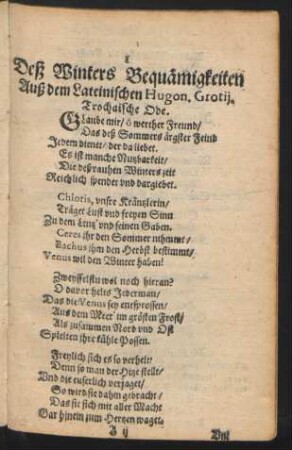 I
Deß Winters Bequämigkeiten
Auß dem Lateinischen Hugon. Grotij.
Trochaische Ode.
GLaube mir/ ô werther Freund/
Das deß Sommers ärgster Feind
Jedem dienet/ der da liebet.
Es ist manche Nutzbarkeit/
Die deß rauhen Winters zeit
Reichlich spendet und dargiebet.
Chloris, unsre Kränzlerin/
Träget Lust und freyen Sinn
Zu dem Lentz und seinen Gaben.
Ceres ihr den Sommer nihmmt/
Bachus ihm den Herbst bestimmt/
Venus wil den Winter haben!
Zweyffelstu wol noch hieran?
O davor helts Jederman/
Das die Venus sey entsprossen/
Aus dem Meer im grösten Frost/
Als zusammen Nord und Ost
Spieleten ihre kühle Possen.
Freylich sich es so verhelt/
Denn so man der Hitze stellt/
Und die euserlich verjaget/
So wird sie dahin gebracht/
Das sie sich mit aller Macht
Gar hinein zum Hertzen waget.
ij
Und